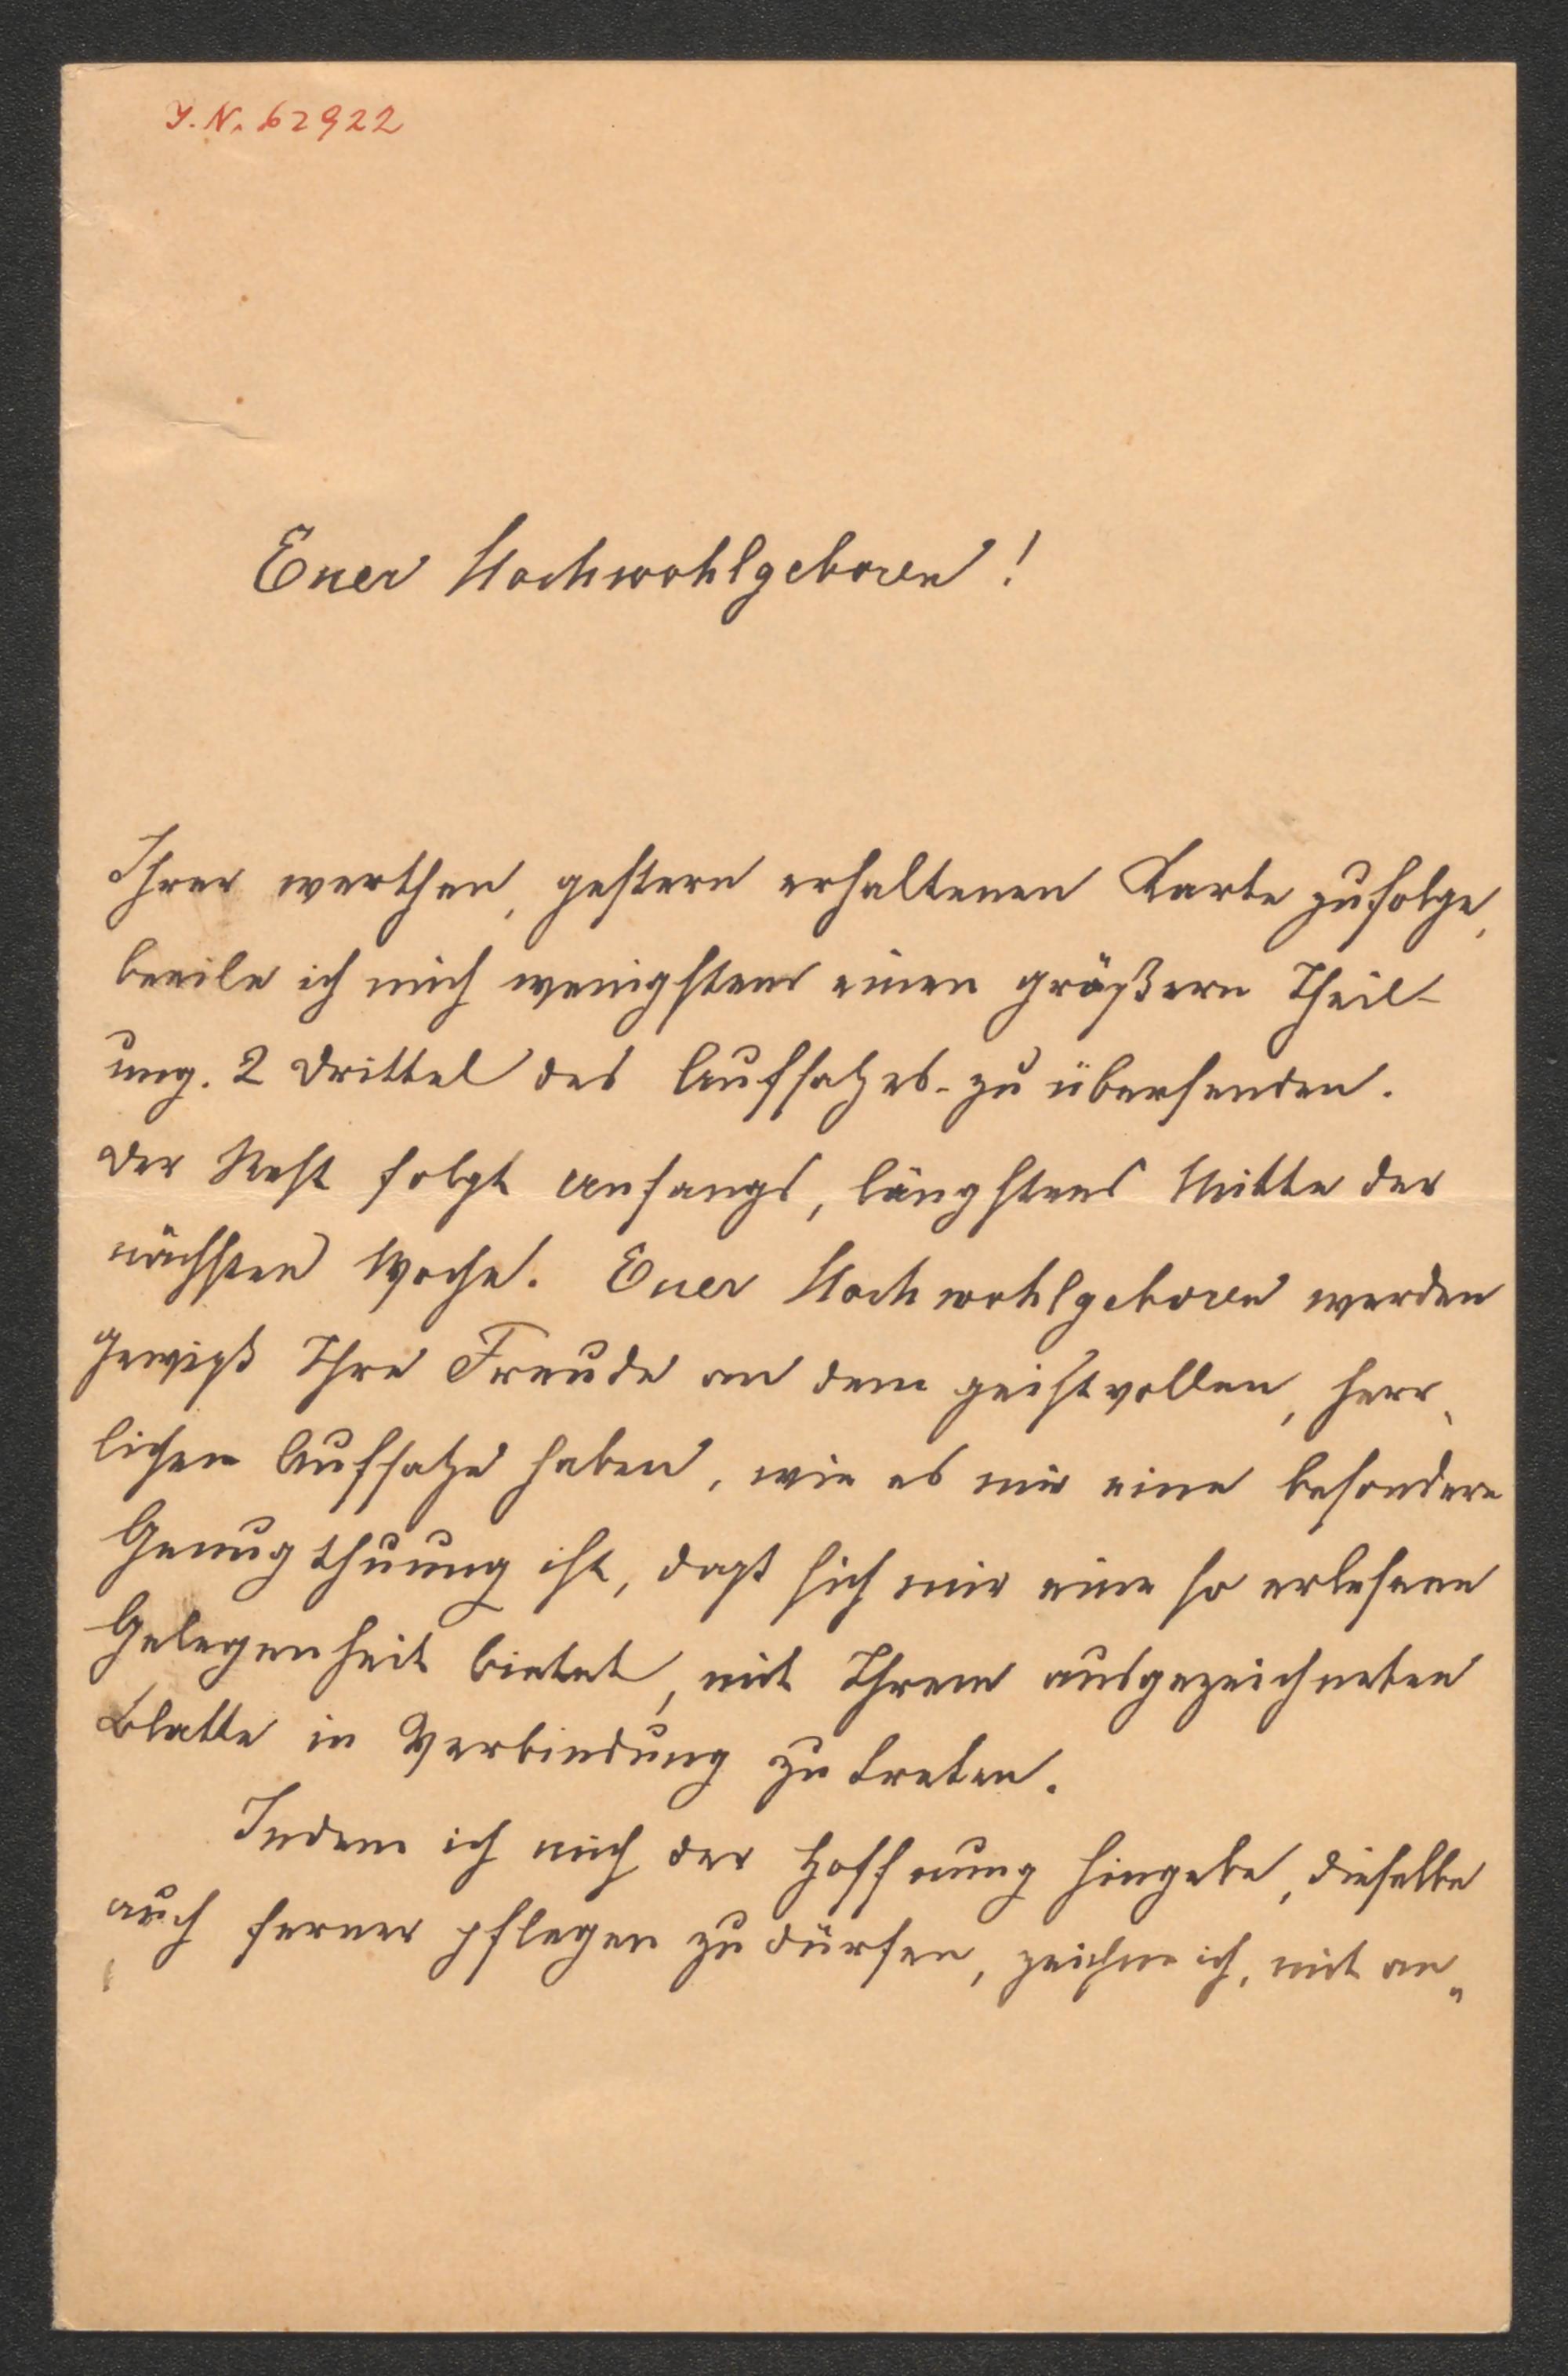 J. N. 62922
Euer Hochwohlgeboren!
Ihrer werthen, gestern erhaltenen Karte zufolge,
beeile ich mich wenigstens einen größern Theil-
ung. 2 Drittel des Aufsatzes- zu übersenden.
Der Rest folgt anfangs, längstens Mitte der
nächsten Woche. Euer Hochwohlgeboren werden
gewiß Ihre Freude an dem geistvollen, herr-
lichen Aufsatze haben, wie es mir eine besondere
Genugthuung ist, daß sich mir eine so erlesene
Gelegenheit bietet, mit Ihrem ausgezeichneten
Blatte in Verbindung zu treten.
Indem ich mich der Hoffnung hingebe, dieselbe
auch ferner pflegen zu dürfen, zeichne ich, mit an-